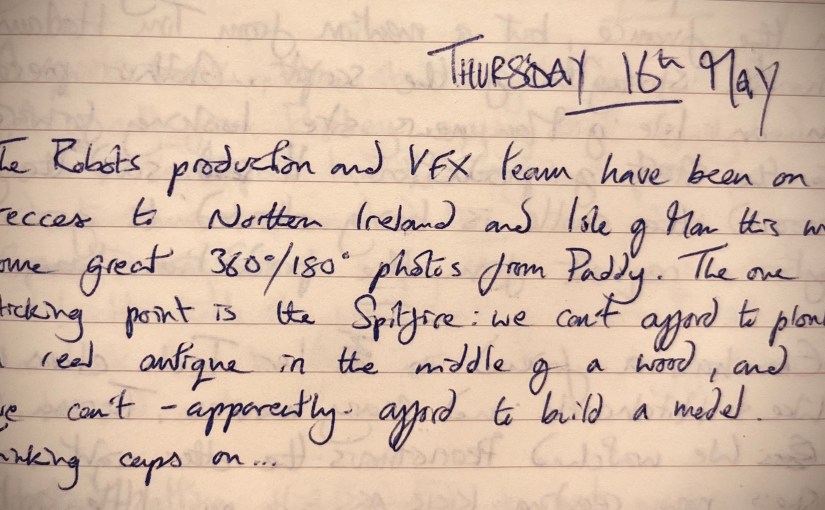 THURSDAY 16th May
Te Robots production and VFX team have been on
recces to Northern Ireland and Isle of Man this w
ome great 360°/180° photos from Paddy. The one
ticking point is the Spitfire: we can't afford to plon
real antique in the middle of a wood, and
e can't - apparently - afford to build a model.
inking caps on...